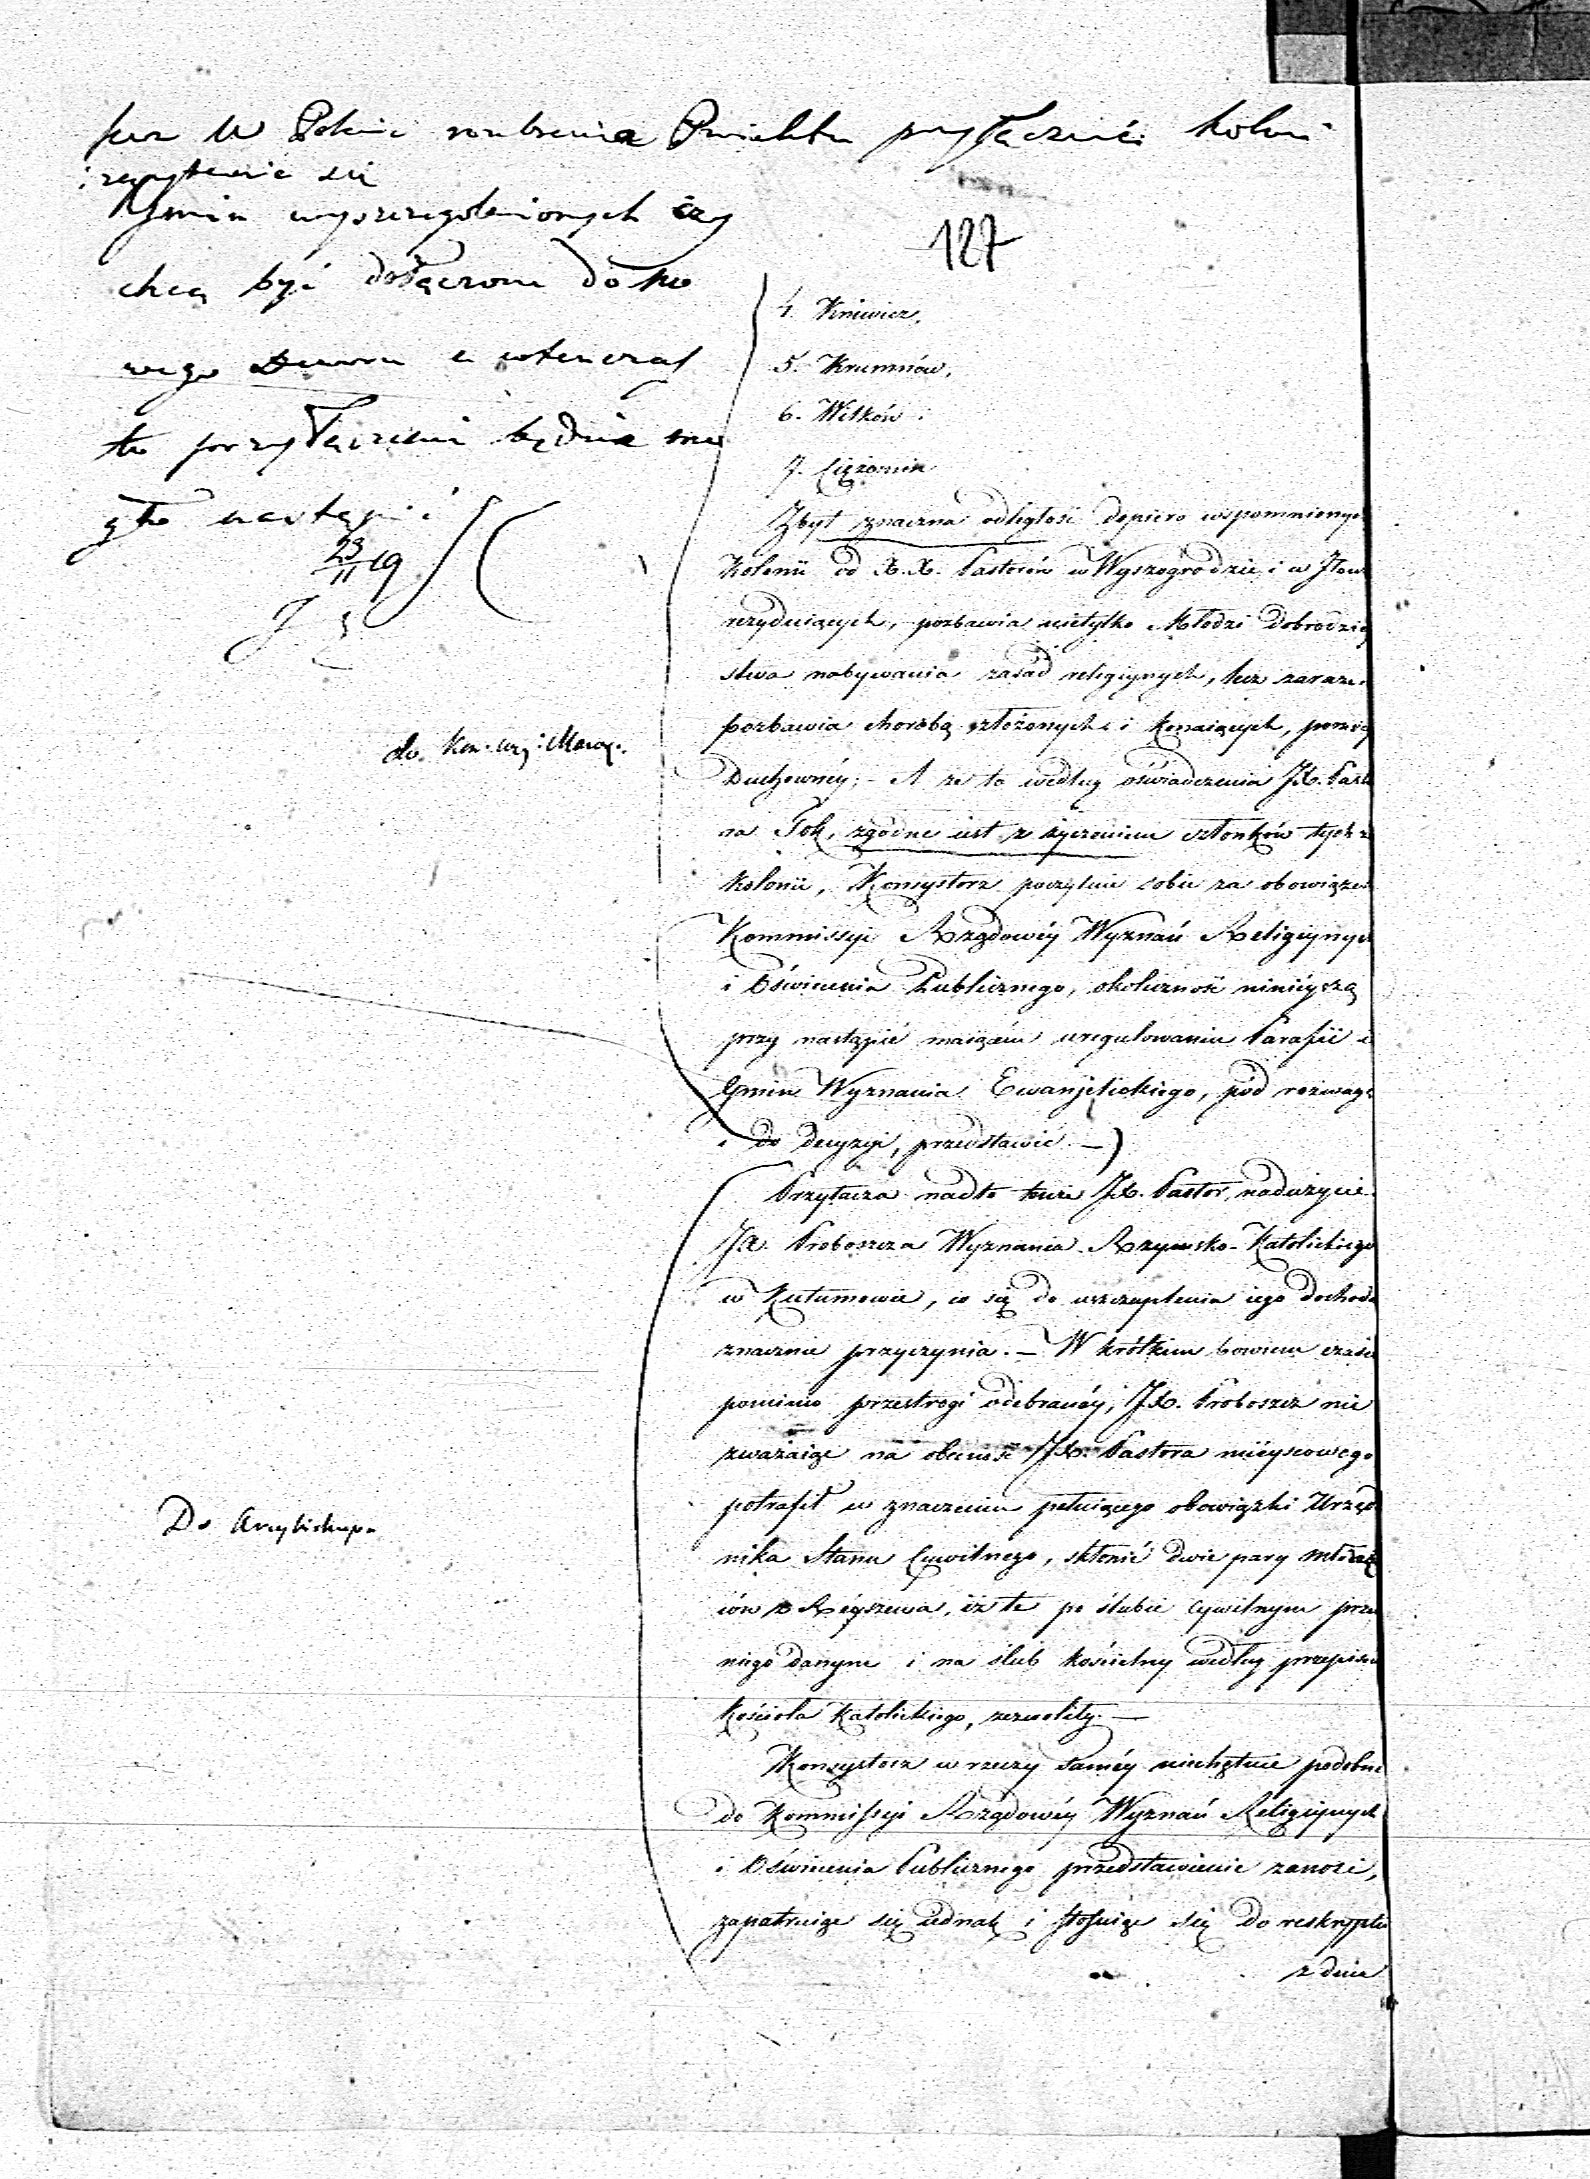 i zapytanie się
Gmin wyszczególnionych czy
chcą być dołączone do no
wego a wtenczas
to przyłączenie będzie mo
gło nastąpić
23/11 19
do Kom. Maz.
Do Arcybiskupa
127
4. Kniwicz,
5. Krumnów,
6. Witków
7. Ciężomin
Zbyt znaczna odległość dopiero wspomnionych
Kolonii od X.X. Pastorów w Wyszogrodzie i w Iłow
rezyduiących, pozbawia nietylko Młodzi dobrodziej
stwa nabywania zasad religiynych, lecz zarazem
pozbawia chorobą złożonych i konaiących, pomocy
Duchownéy; – A że to według oświadczenia JX. Pasto
ra Tok, zgodne iest z życzeniem członków tychże
Kolonii, Konsystorz poczytuie sobie za obowiązek
Kommissyi Rządowéy Wyznań Religiynych
i Oświecenia Publicznego, okoliczność ninieyszą
przy nastąpić maiącém uregulowaniu Parafii i
Gmin Wyznania Ewanjelickiego, pod rozwagę
i do decyzyi, przedstawić –)
Przytacza nadto tenże JX. Pastor, nadużycie
JX. Proboszcza Wyznania Rzymsko-Katolickiego
w, co się do uszczuplenia iego dochodu
znacznie przyczynia. – W krótkim bowiem czasie
pomimo przestrogi odebranéy, JX. Proboszcz nie
zważaiąc na obecność JX. Pastora mieyscowego
potrafił w znaczeniu pełniącego obowiązki Urzęd
nika Stanu Cywilnego, skłonić dwie pary młodzi
ców z Rèyszewa, iż te po ślubie cywilnym przez
niego danym i na ślub kościelny według przepisu
Kościoła Katolickiego, zezwoliły. –
Konsystorz w rzeczy saméy niechętnie podobne
do Kommissyi Rządowéy Wyznań Religiynych
i Oświecenia Publicznego przedstawienie zanosi,
zapatruiąc się iednak i stosuiąc się do reskryptu
z dnia